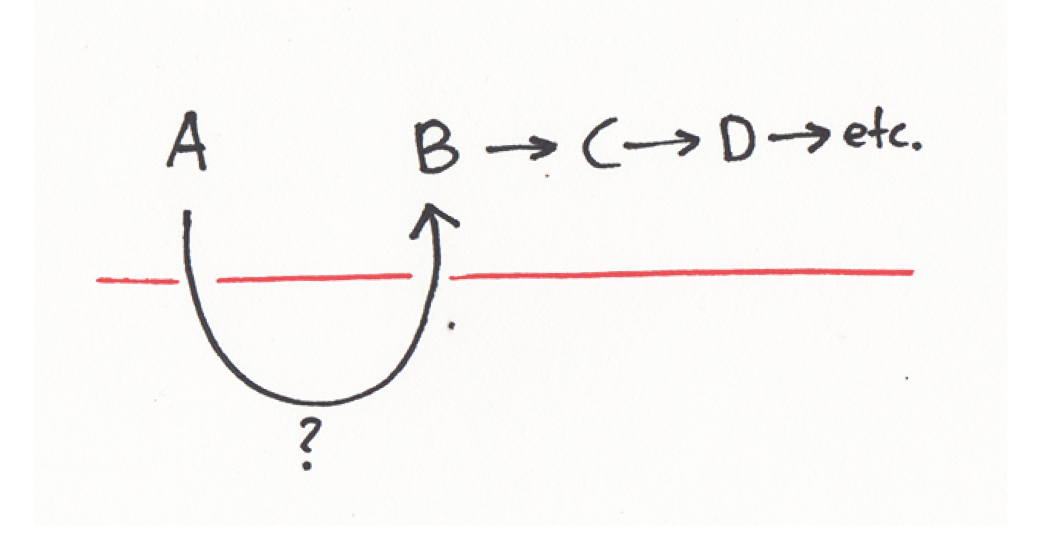 A B → C → D → etc.
?